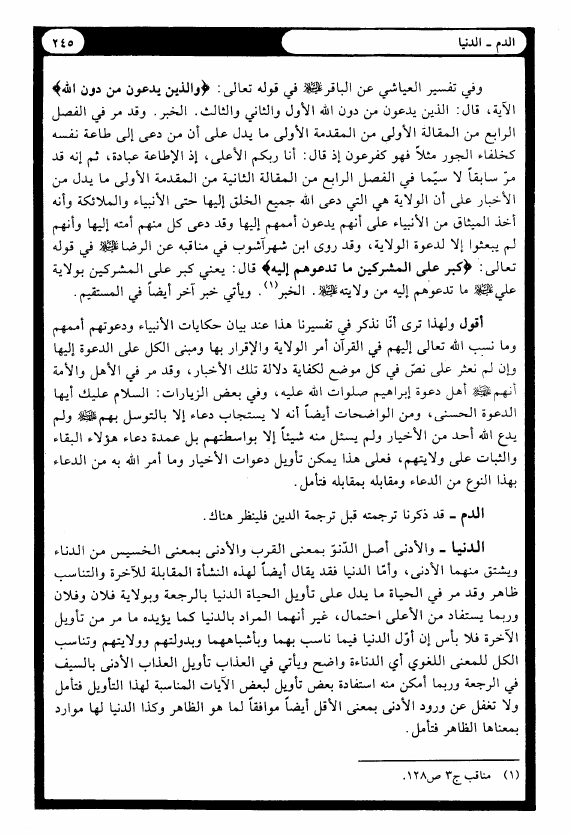 الدم ـ الدنيا
٢٤٥
وفي تفسير العياشي عن الباقر عليه السلام في قوله تعالى: ﴿والذين يدعون من دون الله﴾
الآية، قال: الذين يدعون من دون الله الأول والثاني والثالث. الخبر. وقد مر في الفصل
الرابع من المقالة الأولى من المقدمة الأولى ما يدل على أن من دعى إلى طاعة نفسه
كخلفاء الجور مثلاً فهو كفرعون إذ قال: أنا ربكم الأعلى، إذ الإطاعة عبادة، ثم إنه قد
مرّ سابقاً لا سيّما في الفصل الرابع من المقالة الثانية من المقدمة الأولى ما يدل من
الأخبار على أن الولاية هي التي دعى الله جميع الخلق إليها حتى الأنبياء والملائكة وأنه
أخذ الميثاق من الأنبياء على أنهم يدعون أممهم إليها وقد دعى كل منهم أمته إليها وأنهم
لم يبعثوا إلا لدعوة الولاية، وقد روى ابن شهرآشوب في مناقبه عن الرضا عليه السلام في قوله
تعالى: ﴿كبر على المشركين ما تدعوهم إليه﴾ قال: يعني كبر على المشركين بولاية
علي عليه السلام ما تدعوهم إليه من ولايته عليه السلام. الخبر(١). ويأتي خبر آخر أيضاً في المستقيم.
أقول ولهذا ترى أنّا نذكر في تفسيرنا هذا عند بيان حكايات الأنبياء ودعوتهم أممهم
وما نسب الله تعالى إليهم في القرآن أمر الولاية والإقرار بها ومبنى الكل على الدعوة إليها
وإن لم نعثر على نصّ في كل موضع لكفاية دلالة تلك الأخبار، وقد مر في الأهل والأمة
أنهم عليهم السلام أهل دعوة إبراهيم صلوات الله عليه، وفي بعض الزيارات: السلام عليك أيها
الدعوة الحسنى، ومن الواضحات أيضاً أنه لا يستجاب دعاء إلا بالتوسل بهم عليهم السلام ولم
يدع الله أحد من الأخيار ولم يسئل منه شيئاً إلا بواسطتهم بل عمدة دعاء هؤلاء البقاء
والثبات على ولايتهم، فعلى هذا يمكن تأويل دعوات الأخيار وما أمر الله به من الدعاء
بهذا النوع من الدعاء ومقابله بمقابله فتأمل.
الدم ـ قد ذكرنا ترجمته قبل ترجمة الدين فلينظر هناك.
الدنيا ـ والأدنى أصل الدّنوّ بمعنى القرب والأدنى بمعنى الخسيس من الدناء
ويشتق منهما الأدنى، وأمّا الدنيا فقد يقال أيضاً لهذه النشأة المقابلة للآخرة والتناسب
ظاهر وقد مر في الحياة ما يدل على تأويل الحياة الدنيا بالرجعة وبولاية فلان وفلان
وربما يستفاد من الأعلى احتمال، غير أنهما المراد بالدنيا كما يؤيده ما مر من تأويل
الآخرة فلا بأس إن أوّل الدنيا فيما ناسب بهما وبأشباههما وبدولتهم وولايتهم وتناسب
الكل للمعنى اللغوي أي الدناءة واضح ويأتي في العذاب تأويل العذاب الأدنى بالسيف
في الرجعة وربما أمكن منه استفادة بعض تأويل لبعض الآيات المناسبة لهذا التأويل فتأمل
ولا تغفل عن ورود الأدنى بمعنى الأقل أيضاً موافقاً لما هو الظاهر وكذا الدنيا لها موارد
بمعناها الظاهر فتأمل.
(١) مناقب ج٣ ص١٢٨.